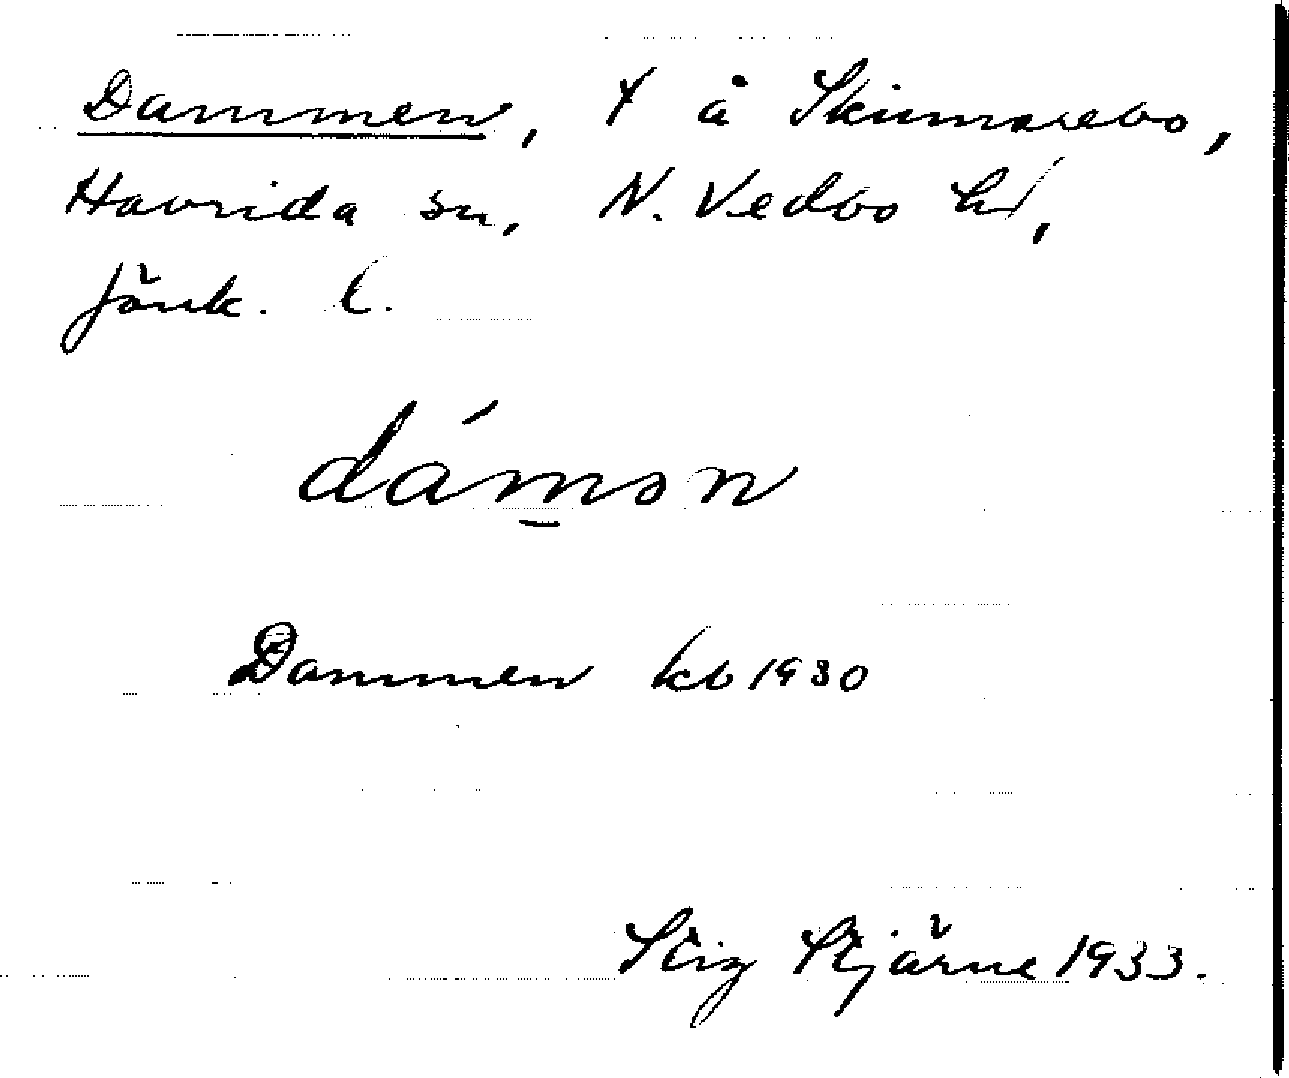 Dammen, t å Skumarebo,
Haurida sn, N. Vedbo hd,
Jönk. l.
dámən
Dammen kb 1930
Stig Stjärne 1933.